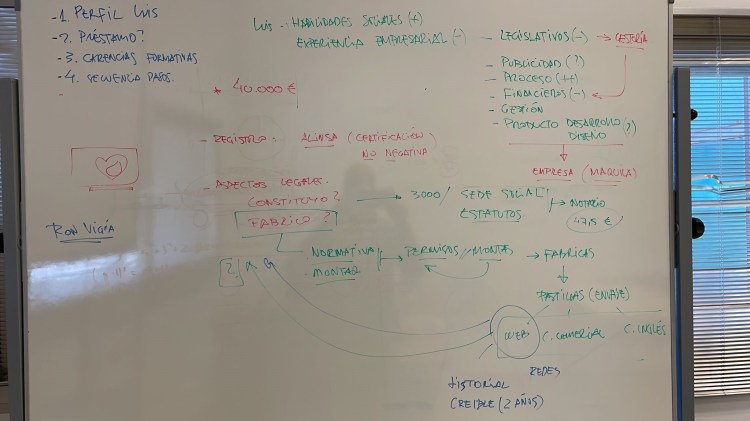 - 1 PERFIL LUIS
- 2. PRÉSTAMO?
- 3. CARENCIAS FORMATIVAS
- 4. SECUENCIA PASOS.
-
LUIS - HABILIDADES SOCIALES (+)
EXPERIENCIA EMPRESARIAL (-)
- LEGISLATIVOS (-) → GESTORÍA
- PUBLICIDAD (?)
- PROCESO (++)
- FINANCIEROS (-)
- GESTIÓN
- PRODUCTO DESARROLLO (?)
DISEÑO
EMPRESA (MAQUILA)
40.000 €
- REGISTRO = ALINSA (CERTIFICACIÓN)
NO NEGATIVA
- ASPECTOS LEGALES.
CONSTITUYO? → 3000 / SEDE SOCIAL
ESTATUTOS
NOTARIO
47,5 €
FABRICO?
RON VIGÍA
NORMATIVA → PERMISOS // MONTAS → FABRICAS
MONTAR
?
PASTILLAS (ENVASE)
WEB C. COMERCIAL C. INGLÉS
REDES
HISTORIAL
CREIBLE (2 AÑOS)